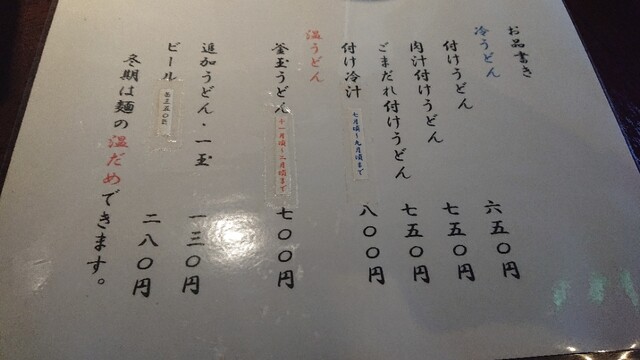 お品書き
冷うどん
付けうどん 六五〇円
肉汁付けうどん 七五〇円
ごまだれ付けうどん 七五〇円
付け冷汁 七月頃～九月頃まで 八〇〇円
温うどん
釜玉うどん 十一月頃～二月頃まで 七〇〇円
追加うどん・一玉 一三〇円
ビール 二八〇円
冬期は麺の温だめできます。